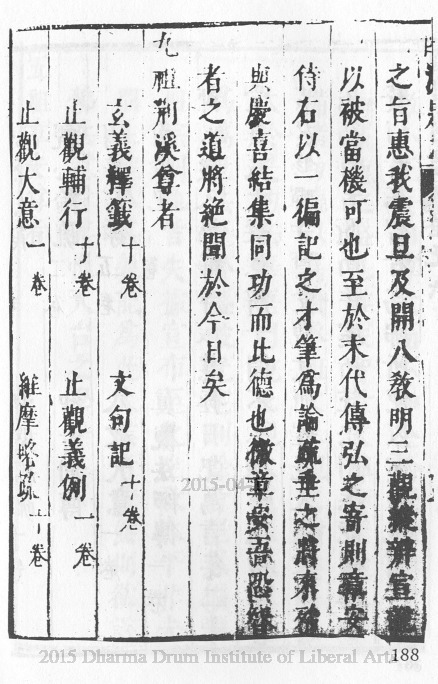 之旨惠我震旦及開八敎明三觀縱辯宣
以被當機可也至於末代傳弘之寄則章安
侍右以一徧記之才筆爲論疏垂之將來殆
與慶喜結集同功而比德也微章安吾恐
者之道將絕聞於今日矣
九祖荆溪尊者
玄義釋籤十卷 文句記十卷
止觀輔行十卷 止觀義例一卷
止觀大意一卷 維摩略疏十卷
2015-04-
188
2015 Dharma Drum Institute of Liberal Arts